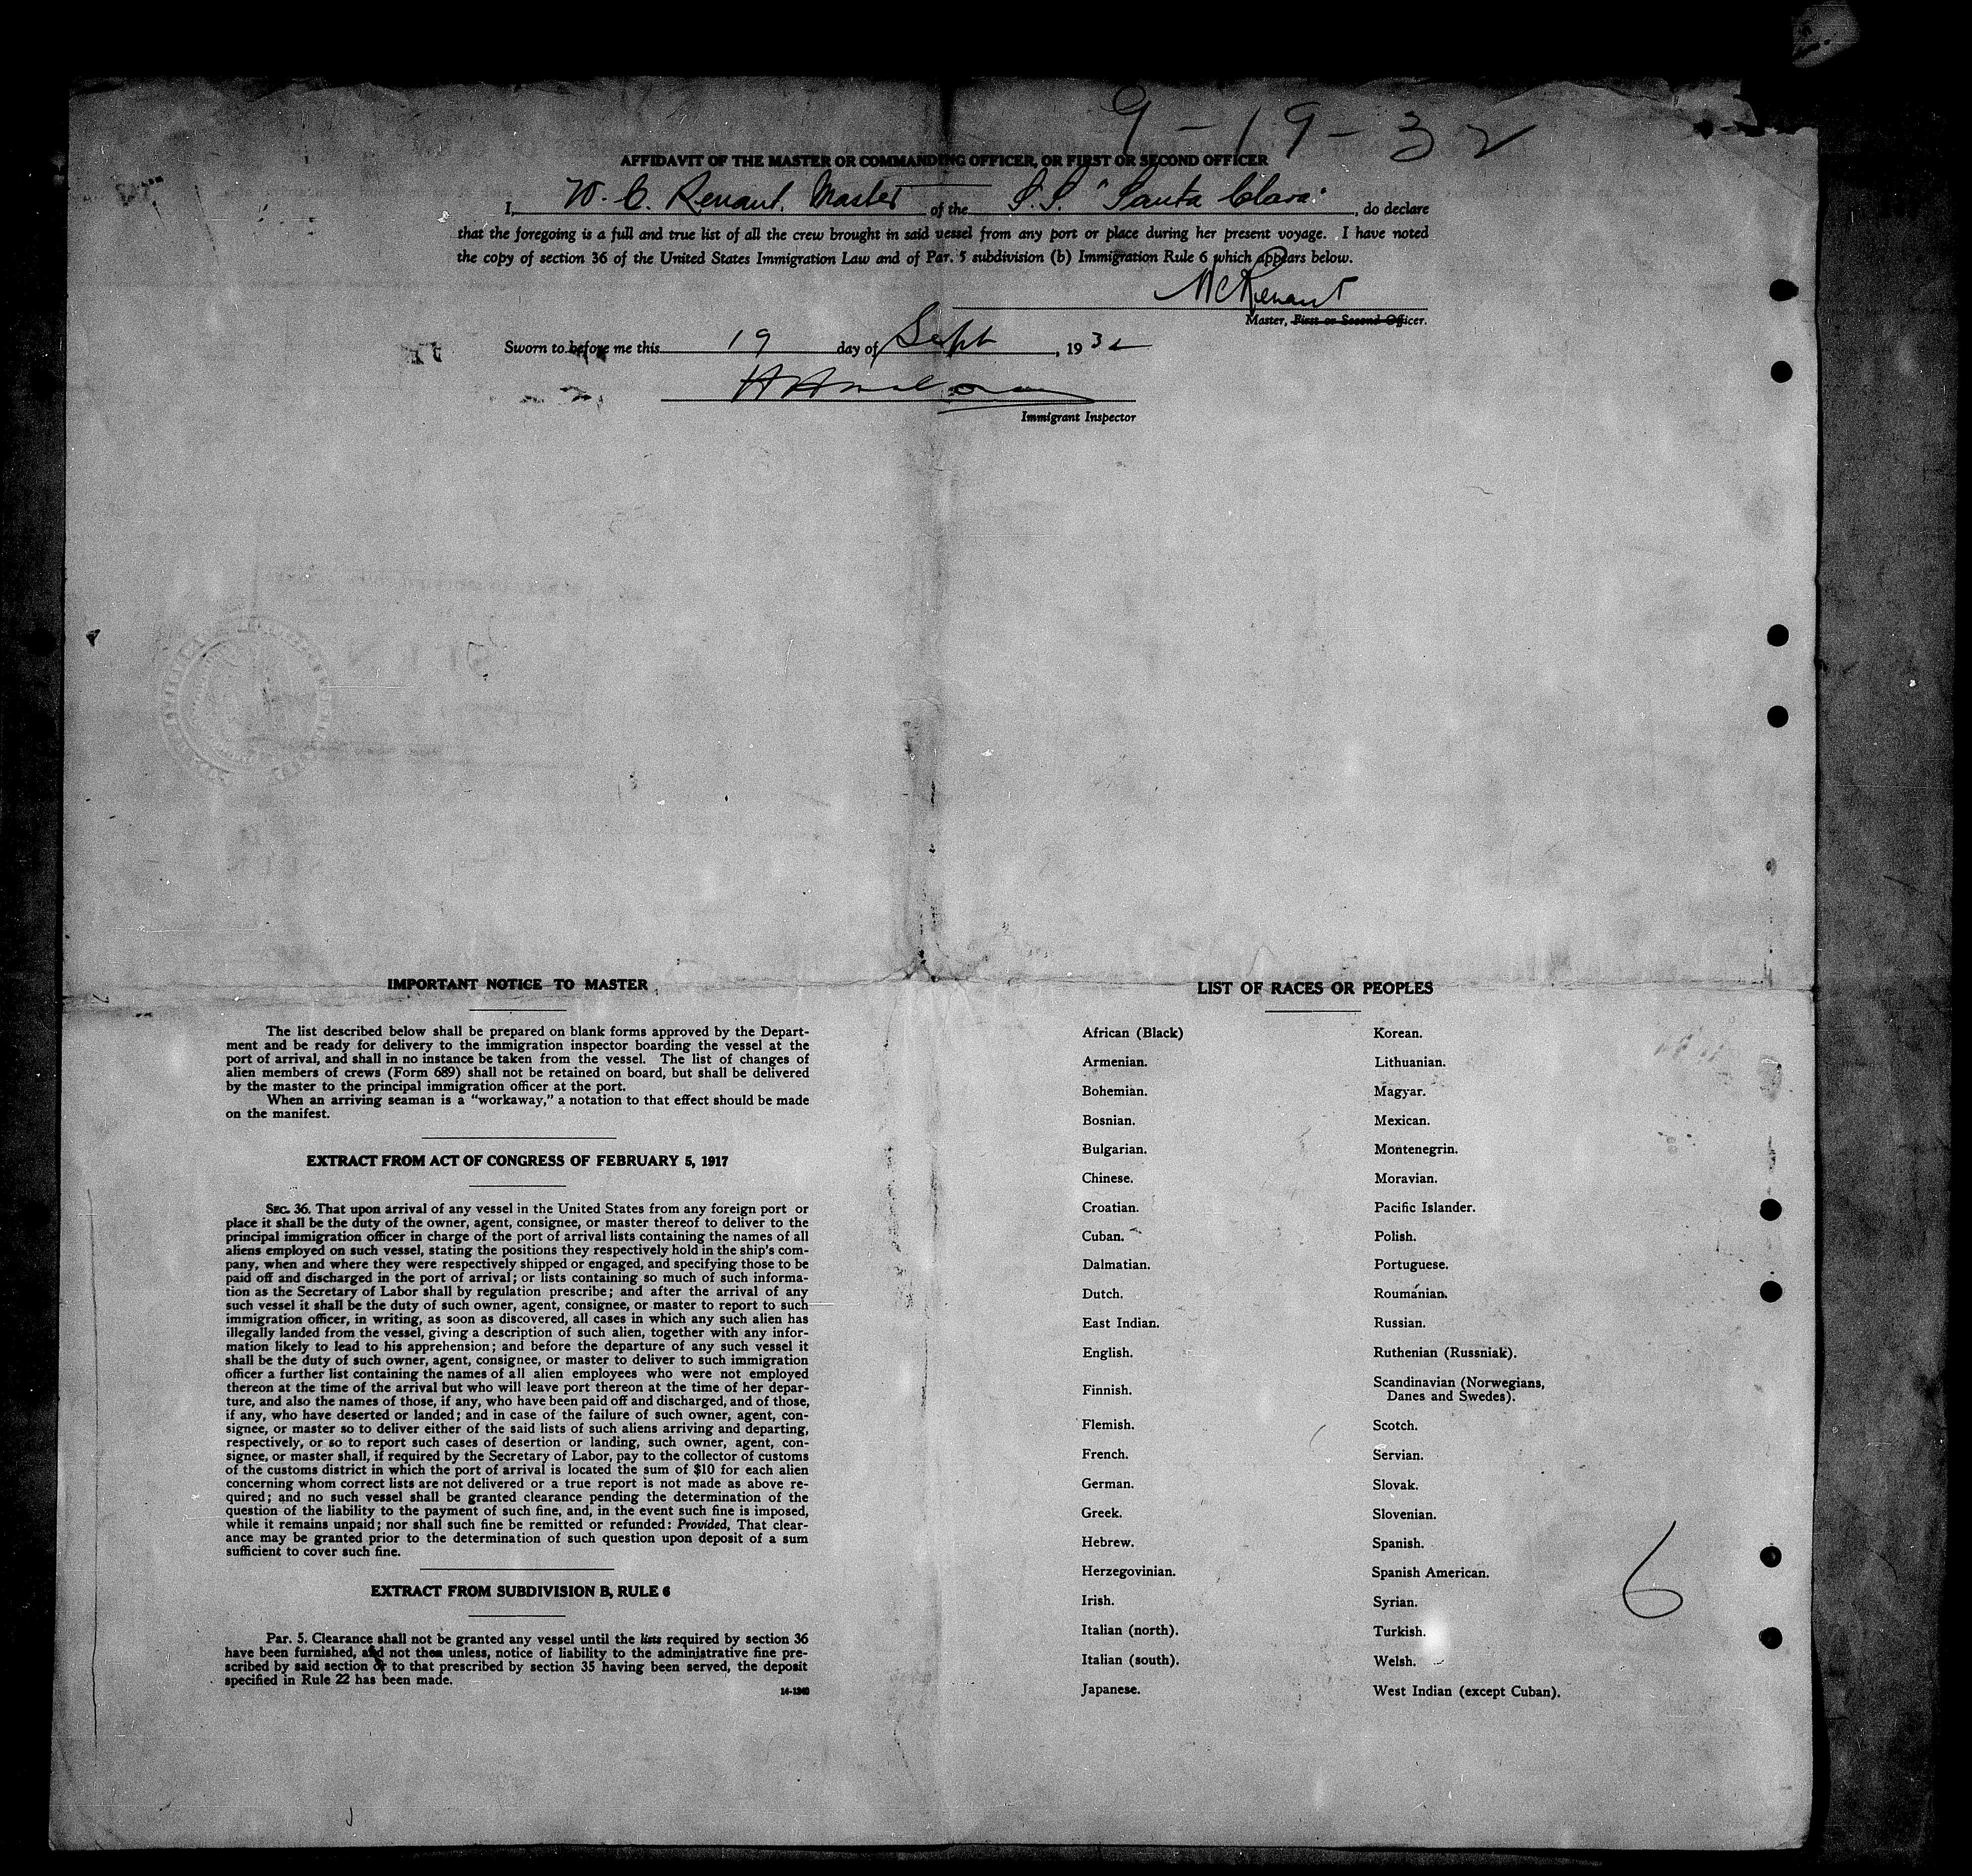 9-19-32
AFFIDAVIT OF THE MASTER OR COMMANDING OFFICER, OR FIRST OR SECOND OFFICER
I, W. C. Renaut, Master of the S.S. "Santa Clara", do declare
that the foregoing is a full and true list of all the crew brought in said vessel from any port or place during her present voyage. I have noted
the copy of section 36 of the United States Immigration Law and of Par. 5 subdivision (b) Immigration Rule 6 which appears below.
WCRenaut
Master, First or Second Officer.
Sworn to before me this 19 day of Sept, 1932
Immigrant Inspector
IMPORTANT NOTICE TO MASTER
The list described below shall be prepared on blank forms approved by the Depart-
ment and be ready for delivery to the immigration inspector boarding the vessel at the
port of arrival, and shall in no instance be taken from the vessel. The list of changes of
alien members of crews (Form 689) shall not be retained on board, but shall be delivered
by the master to the principal immigration officer at the port.
When an arriving seaman is a "workaway," a notation to that effect should be made
on the manifest.
EXTRACT FROM ACT OF CONGRESS OF FEBRUARY 5, 1917
SEC. 36. That upon arrival of any vessel in the United States from any foreign port or
place it shall be the duty of the owner, agent, consignee, or master thereof to deliver to the
principal immigration officer in charge of the port of arrival lists containing the names of all
aliens employed on such vessel, stating the positions they respectively hold in the ship's com-
pany, when and where they were respectively shipped or engaged, and specifying those to be
paid off and discharged in the port of arrival; or lists containing so much of such informa-
tion as the Secretary of Labor shall by regulation prescribe; and after the arrival of any
such vessel it shall be the duty of such owner, agent, consignee, or master to report to such
immigration officer, in writing, as soon as discovered, all cases in which any such alien has
illegally landed from the vessel, giving a description of such alien, together with any infor-
mation likely to lead to his apprehension; and before the departure of any such vessel it
shall be the duty of such owner, agent, consignee, or master to deliver to such immigration
officer a further list containing the names of all alien employees who were not employed
thereon at the time of the arrival but who will leave port thereon at the time of her depar-
ture, and also the names of those, if any, who have been paid off and discharged, and of those,
if any, who have deserted or landed; and in case of the failure of such owner, agent, con-
signee, or master so to deliver either of the said lists of such aliens arriving and departing,
respectively, or so to report such cases of desertion or landing, such owner, agent, con-
signee, or master shall, if required by the Secretary of Labor, pay to the collector of customs
of the customs district in which the port of arrival is located the sum of $10 for each alien
concerning whom correct lists are not delivered or a true report is not made as above re-
quired; and no such vessel shall be granted clearance pending the determination of the
question of the liability to the payment of such fine, and, in the event such fine is imposed,
while it remains unpaid; nor shall such fine be remitted or refunded: Provided, That clear-
ance may be granted prior to the determination of such question upon deposit of a sum
sufficient to cover such fine.
EXTRACT FROM SUBDIVISION B, RULE 6
Par. 5. Clearance shall not be granted any vessel until the lists required by section 36
have been furnished, and not then unless, notice of liability to the administrative fine pre-
scribed by said section or to that prescribed by section 35 having been served, the deposit
specified in Rule 22 has been made.
14-1240
LIST OF RACES OR PEOPLES
African (Black)
Armenian.
Bohemian.
Bosnian.
Bulgarian.
Chinese.
Croatian.
Cuban.
Dalmatian.
Dutch.
East Indian.
English.
Finnish.
Flemish.
French.
German.
Greek.
Hebrew.
Herzegovinian.
Irish.
Italian (north).
Italian (south).
Japanese.
Korean.
Lithuanian.
Magyar.
Mexican.
Montenegrin.
Moravian.
Pacific Islander.
Polish.
Portuguese.
Roumanian.
Russian.
Ruthenian (Russniak).
Scandinavian (Norwegians,
Danes and Swedes).
Scotch.
Servian.
Slovak.
Slovenian.
Spanish.
Spanish American.
Syrian.
Turkish.
Welsh.
West Indian (except Cuban).
6